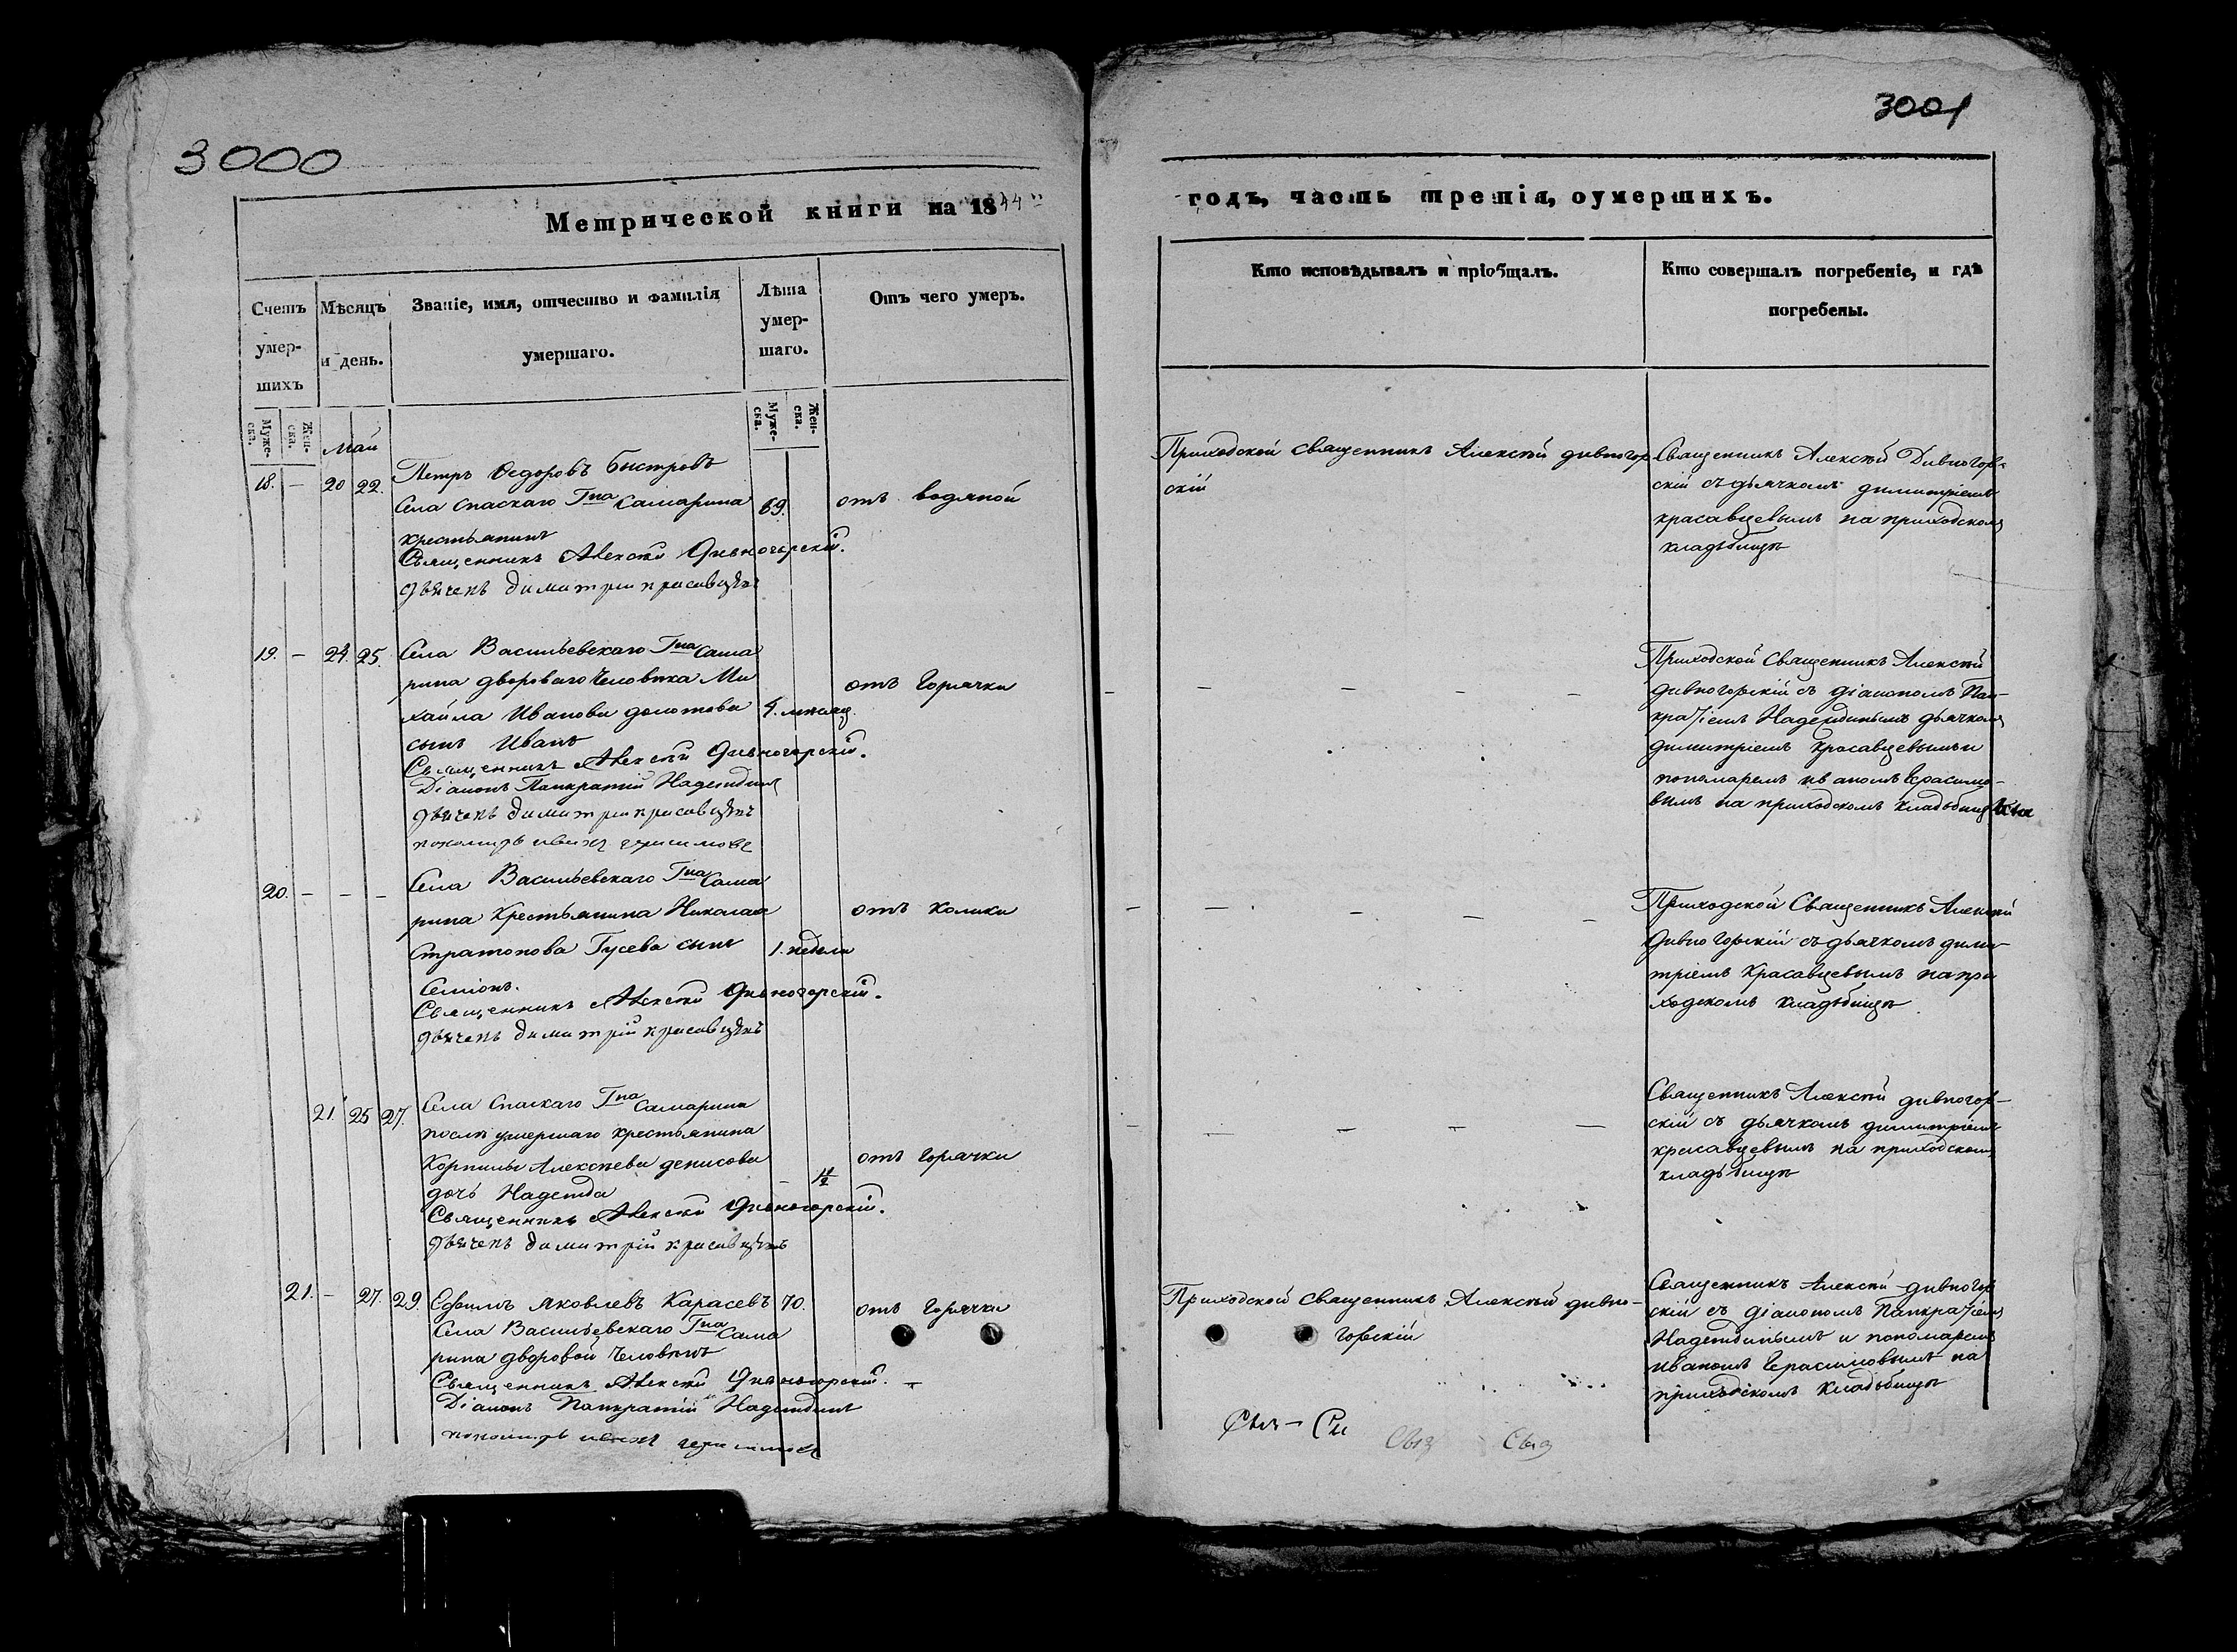 3000
Метрической книги на 1844
Счетъ умер-шихъ
Мѣсяцъ и день.
Званіе, имя, отчество и фамилія умершаго.
Лѣта умер-шаго.
Отъ чего умеръ.
Муже-ска.
Жен-ска.
Муже-ска.
Жен-ска.
Май
18. — 20 22.
Петръ Ѳедоровъ Быстровъ
Села Спаскаго Гна Самарина 69. отъ водяной
крестьянинъ
Священникъ Алексѣй Дивногорскій.
Дьячекъ Димитрій Красавцевъ
19. — 24. 25. Села Васильевскаго Гна Сама
рина двороваго человѣка Ми отъ Горячки
хайла Иванова Долотова 4. мѣсяц.
сынъ Иванъ
Священникъ Алексѣй Дивногорскій.
Діаконъ Панкратій Надеждинъ
Дьячекъ Димитрій Красавцевъ
пономарь Иванъ Герасимовъ
20. — — — Села Васильевскаго Гна Сама
рина крестьянина Николая отъ колики
Стратонова Гусева сынъ 1. недѣли
Симіонъ.
Священникъ Алексѣй Дивногорскій.
Дьячекъ Димитрій Красавцевъ
21. 25 27. Села Спаскаго Гна Самарина
послѣ умершаго крестьянина
Корнилы Алексѣева Денисова отъ Горячки
дочь Надежда — 1/2
Священникъ Алексѣй Дивногорскій.
Дьячекъ Димитрій Красавцевъ
21. — 27. 29. Ефимъ Яковлевъ Карасевъ 70. отъ Горячки
Села Васильевскаго Гна Сама
рина дворовой человѣкъ
Священникъ Алексѣй Дивногорскій.
Діаконъ Панкратій Надеждинъ
пономарь Иванъ Герасимовъ
3001
годъ, часть третія, оумершихъ.
Кто исповѣдывалъ и пріобщалъ.
Кто совершалъ погребеніе, и гдѣ
погребены.
Приходской священникъ Алексѣй Дивногор
скій
Священникъ Алексѣй Дивногор-
скій съ дьячкомъ Димитріемъ
Красавцевымъ на приходскомъ
кладьбищѣ
— — — — —
Приходской Священникъ Алексѣй
Дивногорскій съ діакономъ Пан-
кратіемъ Надеждинымъ дьячкомъ
Димитріемъ Красавцевымъ и
пономаремъ Иваномъ Герасимо-
вымъ на приходскомъ кладьбищѣ
— — — — —
Приходской Священникъ Алексѣй
Дивногорскій съ дьячкомъ Дими-
тріемъ Красавцевымъ на при
ходскомъ кладьбищѣ
— — — — —
Священникъ Алексѣй Дивногор-
скій съ дьячкомъ Димитріемъ
Красавцевымъ на приходскомъ
кладьбищѣ
Приходской священникъ Алексѣй Дивно-
горскій
Священникъ Алексѣй Дивногор
скій съ діакономъ Панкратіемъ
Надеждинымъ и пономаремъ
Иваномъ Герасимовымъ на
приходскомъ кладьбищѣ